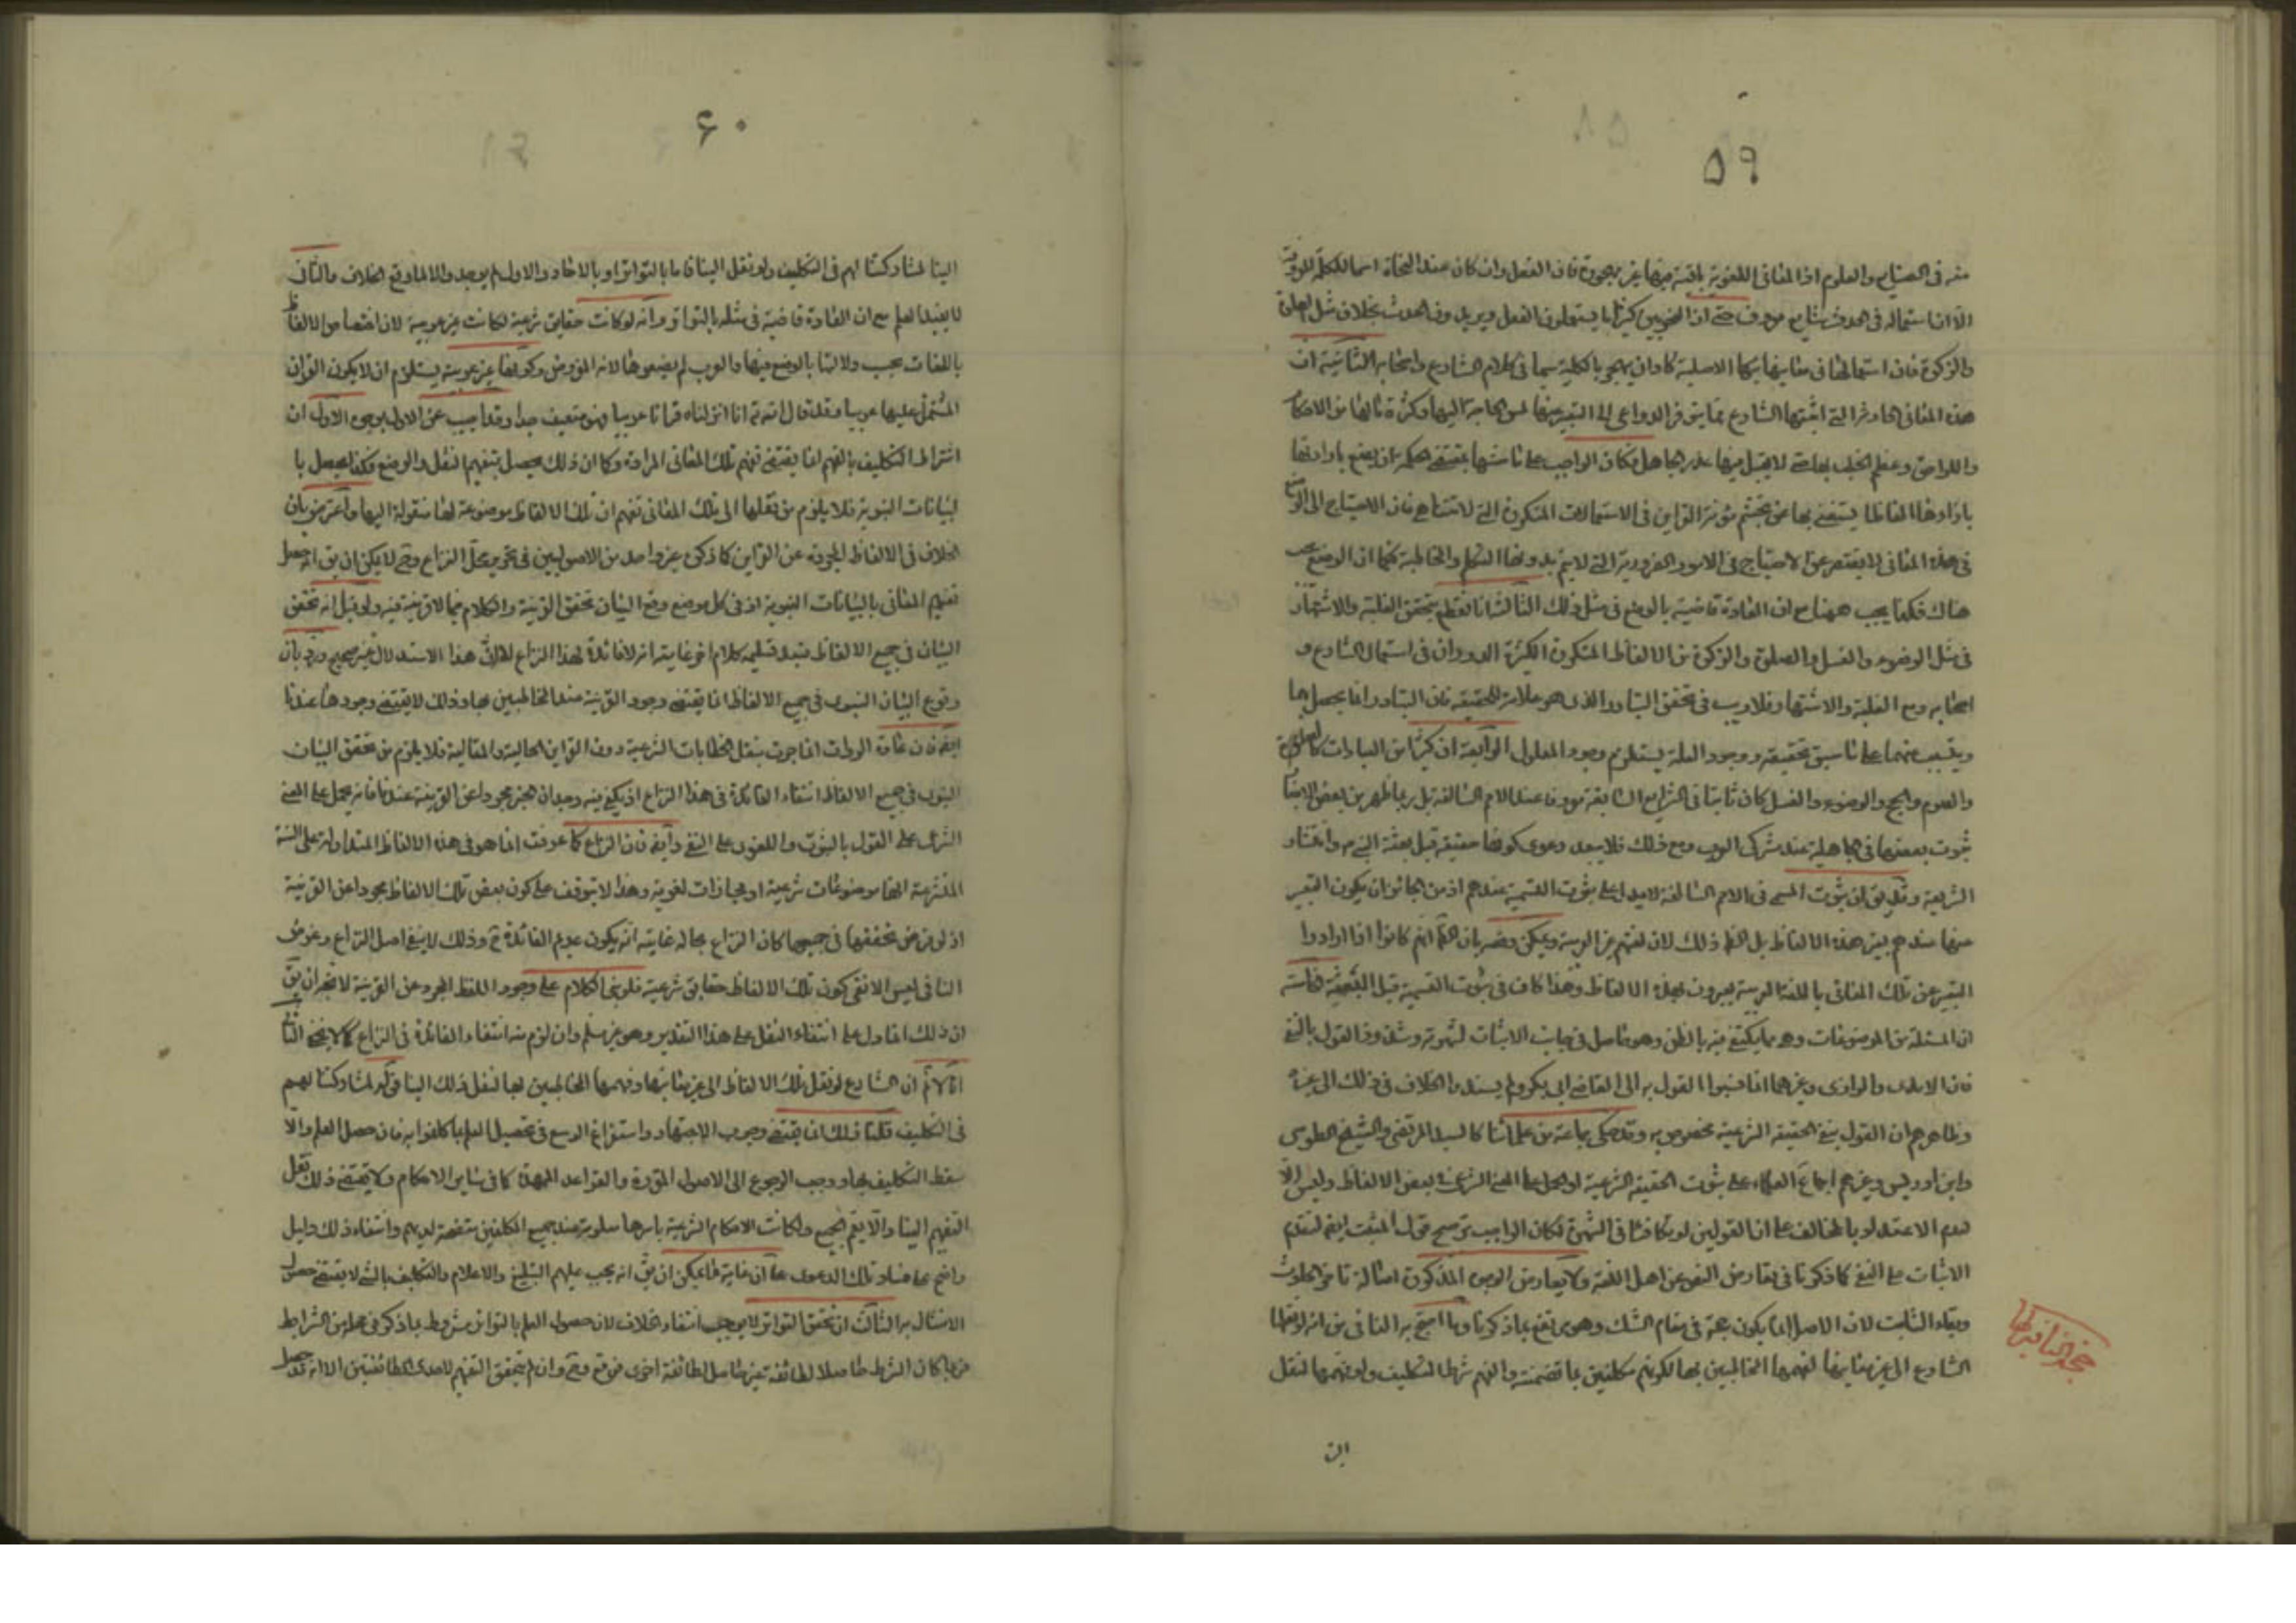 ۵۹
منه في الصنايع والعلوم اذ المعاني اللغوية باقية فيها غير مهجورة فان الفعل وان كان عند النحاة اسما للكلمة المعروفة
الا ان استعماله في الحدث شايع معروف حتى ان النحويين كثيرا ما يستعملون الفعل ويريدون الحدث بخلاف مثل الصلوة
والزكوة فان استعمالها في معانيها الاصلية كاد ان يهجر بالكلية سيما في كلام الشارع واصحابه الثانية ان
هذه المعاني الحادثة التي اثبتها الشارع مما يتوفر الدواعي الى التعبير عنها لمس الحاجة اليها وكثرة ما لها من الاحكام
واللواحق وعظم الخطب بها حتى لا يقبل فيها عذر الجاهل فكان الواجب على مقتضى الحكمة ان يضع بارادتها
بازائها الفاظا يستغنى بها عن تجشم مؤنة القراين في الاستعمالات المتكررة التي لا تتناهى فان الاحتياج الى الوضع
في هذه المعاني لا يقصر عن الاحتياج في الامور الضرورية التي لا يتم بدونها التكلم والمخاطبة فكما ان الوضع يجب
هناك فكذا يجب ههنا مع ان العادة قاضية بالوضع في مثل ذلك الثالث انا نقطع بتحقق الغلبة والاشتهار
في مثل الوضوء والغسل والصلوة والزكوة من الالفاظ المتكررة الكثيرة الدوران في استعمال الشارع و
اصحابه ومع الغلبة والاشتهار فلا ريب في تحقق التبادر الذي هو علامة الحقيقة فان التبادر انما يحصل بها
ويتسبب عنهما على ما سبق تحقيقه ووجود العلة يستلزم وجود المعلول الرابعة ان كثيرا من العبادات كالصلوة
والصوم والحج والوضوء والغسل كان ثابتا في الشرايع السابقة معروفا عند الامم السالفة بل ربما ظهر من بعض الاخبار
ثبوت بعضها في الجاهلية عند مشركي العرب ومع ذلك فلا يبعد دعوى كونها حقيقة قبل بعثة النبي ص وانتشار
الشريعة وقد يق ان ثبوت المسمى في الامم السالفة لا يدل على ثبوت التسمية عندهم اذ من الجائز ان يكون التعبير
عنها عندهم بغير هذه الالفاظ بل الظ ذلك لان لغتهم غير العربية ويمكن دفعه بان الظ انهم كانوا اذا ارادوا
التعبير عن تلك المعاني باللغة العربية يعبرون بهذه الالفاظ وهذا كاف في ثبوت التسمية قبل الشريعة
ان المسئلة من الموضوعات وهي مما يكتفى فيه بالظن وهو حاصل في جانب الاثبات لشهرته وشذوذ القول بالنفي
فان الامدي والرازي وغيرهما انما نسبوا القول به الى القاضي ابي بكر ولم يسندوا الخلاف في ذلك الى غيره
وظاهرهم ان القول بنفي الحقيقة الشرعية مخصوص به وقد حكى جماعة من علمائنا كالسيد المرتضى والشيخ الطوسي
وابن ادريس وغيرهم اجماع العلماء على ثبوت الحقيقة الشرعية او الحمل على المعنى الشرعي في بعض الالفاظ وليس الا
لعدم الاعتداد بالمخالف على ان القولين لو تكافئا في الشهرة لكان الواجب ترجيح قول المثبت ايضا لتقدم
الاثبات على النفي كما ذكرنا في تعارض النص عن اهل اللغة ولا يعارض الوجوه المذكورة اصالة تاخر الحادث
وبقاء الثابت لان الاصل انما يكون حجة في مقام الشك وهو مرتفع بما ذكرنا وما احتج به النافي من انه لو نقلها
الشارع الى غير معانيها لفهمها المخاطبين بها لكونهم مكلفين بما تضمنته والفهم شرط التكليف ولو فهمها لنقل
الين
حجة النافي
۶۰
الينا لمشاركتنا لهم في التكليف ولو نقل الينا فاما بالتواتر او بالاحاد والاول لم يوجد والا لما وقع الخلاف والثاني
لا يفيد العلم مع ان العادة قاضية في مثله بالتواتر وانه لو كانت حقايق شرعية لكانت غير عربية لان اختصاص الالفاظ
باللغات بحسب دلالتها بالوضع فيها والعرب لم يضعوها لانه المفروض وكونها غير عربية يستلزم ان لا يكون القران
المشتمل عليها عربيا وقد قال الله تع انا انزلناه قرانا عربيا فهو ضعيف جدا وقد اجيب عن الاول بوجوه الاول ان
اشتراط التكليف بالفهم انما يقتضي فهم تلك المعاني المرادة وكما ان ذلك يحصل بتفهيم النقل والوضع فكذا يحصل با
لبيانات النبوية فلا يلزم من نقلها الى تلك المعاني تفهم ان تلك الالفاظ موضوعة لها منقولة اليها واعترض بان
الخلاف في الالفاظ المجردة عن القراين كما ذكره غير واحد من الاصوليين في تحرير محل النزاع وحينئذ لا يمكن ان يق انه حصل
تفهيم المعاني بالبيانات النبوية اذ في كل موضع وقع البيان تحقق القرينة والكلام فيما لا قرينة فيه ولو قيل انه تحقق
البيان في جميع الالفاظ فبعد تسليمه كلام اخر غايته انه لا فائدة لهذا النزاع لا ان هذا الاستدلال غير صحيح ورد بان
وقوع البيان النبوي في جميع الالفاظ انما يقتضي وجود القرينة عند المخاطبين بها وذلك لا يقتضي وجودها عندنا
ايضا فان عادة الرواة انما جرت بنقل الخطابات الشرعية دون القراين الحالية والمقالية فلا يلزم من تحقق البيان
النبوي في جميع الالفاظ انتفاء الفائدة في هذا النزاع اذ يكفي فيه وجدان خبر مجردا عن القرينة عندنا فانه يحمل على المعنى
الشرعي على القول بالثبوت واللغوي على النفي وايضا فان النزاع كما عرفت انما هو في هذه الالفاظ المتداولة على السنة
المتشرعة انها موضوعات شرعية او مجازات لغوية وهذا لا يتوقف على كون بعض تلك الالفاظ مجردا عن القرينة
اذ لو فرض تحققها في جميعها كان النزاع بحاله غايته انه يكون عديم الفائدة ح وذلك لا ينفي اصل النزاع وغرض
النافي ليس الا نفي كون تلك الالفاظ حقايق شرعية فلو بنى الكلام على وجود اللفظ المجرد عن القرينة لاتجه ان يق
ان ذلك انما دل على انتفاء النقل على هذا التقدير وهو غير مسلم وان لزم منه انتفاء الفائدة في النزاع كما لا يخفى الثاني
انا لا نم ان الشارع لو نقل تلك الالفاظ الى غير معانيها وفهمها المخاطبين بها لنقل ذلك الينا قولكم لمشاركتنا لهم
في التكليف قلنا ذلك انما يقتضي وجوب الاجتهاد واستفراغ الوسع في تحصيل العلم بما كلفوا به فان حصل العلم والا
سقط التكليف بها ووجب الرجوع الى الاصول المقررة والقواعد الممهدة كما في ساير الاحكام ولا يقتضي ذلك نقل
التفهيم الينا والا يعم الجميع ولكانت الاحكام الشرعية باسرها معلومة عند جميع المكلفين متضحة لديهم وانتفاء ذلك دليل
واضح على فساد تلك الدعوى على ان غاية ما يمكن ان يق انه يجب عليهم التبليغ والاعلام والتكليف بالشئ لا يقتضي حصول
الامتثال به الثالث ان تحقق التواتر لا يوجب انتفاء الخلاف لان حصول العلم بالتواتر مشروط بما ذكر في محله من الشرايط
فربما كان الشرط حاصلا لطائفة غير حاصل لطائفة اخرى وان لم يتحقق التفهيم لاحدى الطائفتين الا انه قد حصل